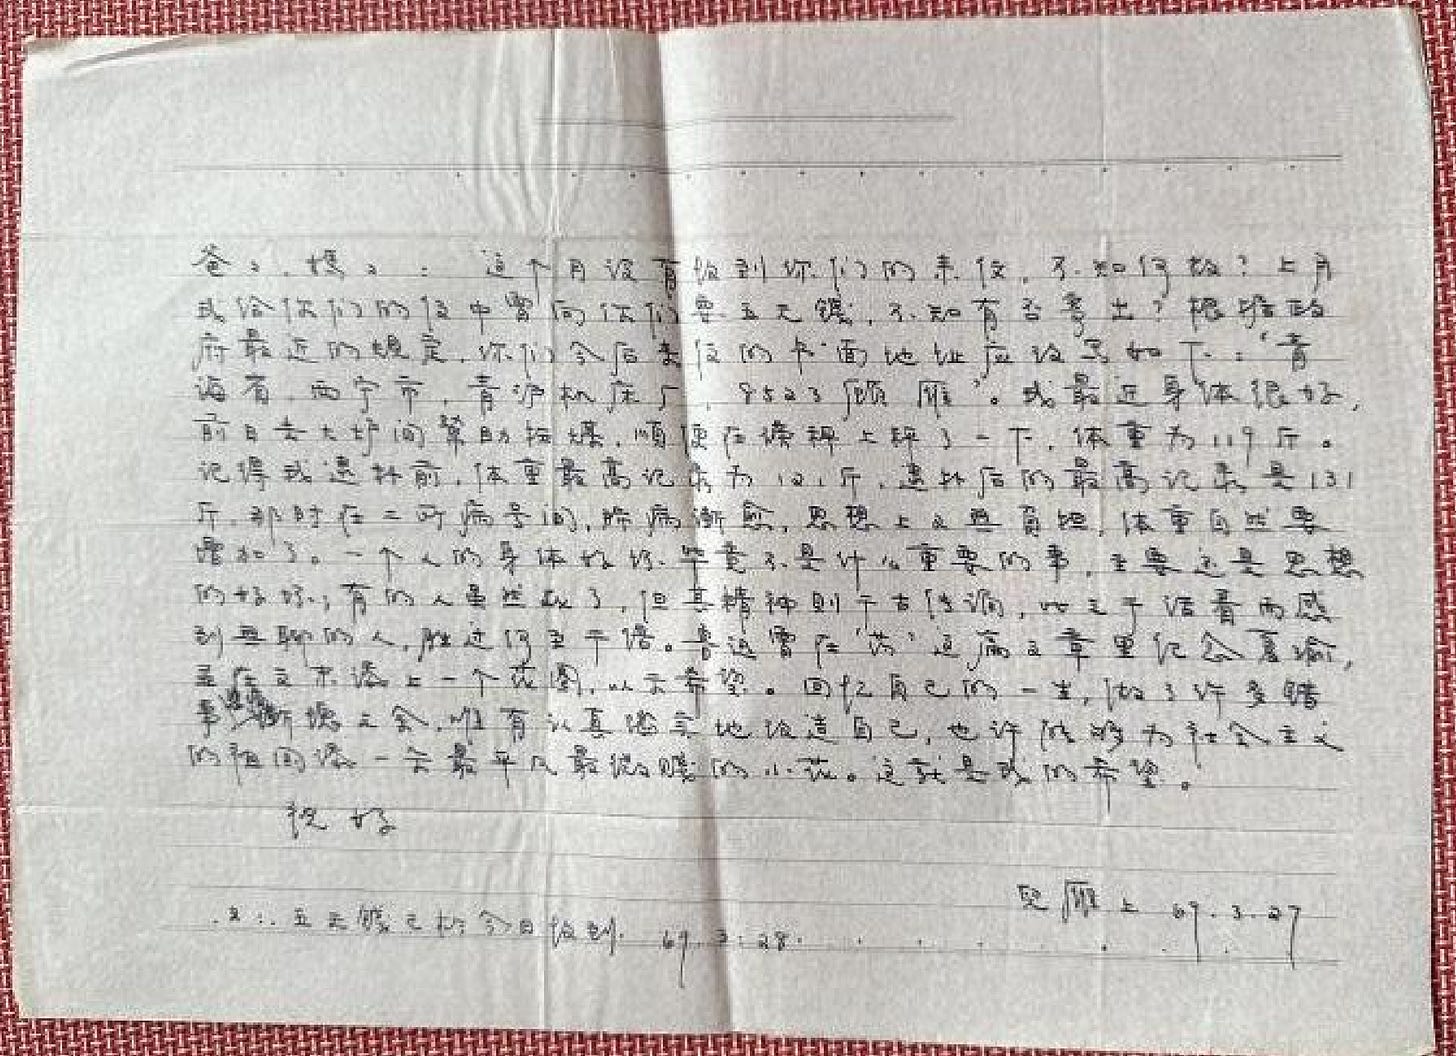 爸々、媽々：这个月没有收到你们的来信，不知何故？上月
我给你们的信中曾向你们要五元錢，不知有否寄出？根据政
府最近的规定，你们今后来信的信面地址应该写如下：“青
海省，西宁市，青沪机床厂，8523 顾雁”。我最近身体很好，
前日去大炉间幫助抬煤，順便在磅秤上秤了一下，体重为119斤。
记得我逮捕前，体重最高记录为121斤，逮捕后的最高记录是131
斤，那时在二所病号间，肺病渐愈，思想上又无負担，体重自然要
增加了。一个人的身体好坏毕竟不是什么重要的事，主要还是思想
的好坏；有的人虽然死了，但其精神则千古传诵，比之于活着而感
到无聊的人，胜过何至千倍。魯迅曾在‘药’这篇文章里纪念夏瑜，
在文末添上一个花圈，以示希望。回忆自己的一生，做了许多錯
事，惭愧之余，唯有认真踏实地改造自己，也许能够为社会主义
的祖国添一朵最平凡最微贱的小花。这就是我的希望。
祝好
兒雁上 69.3.27
又：五元錢已於今日收到. 69.3.28.